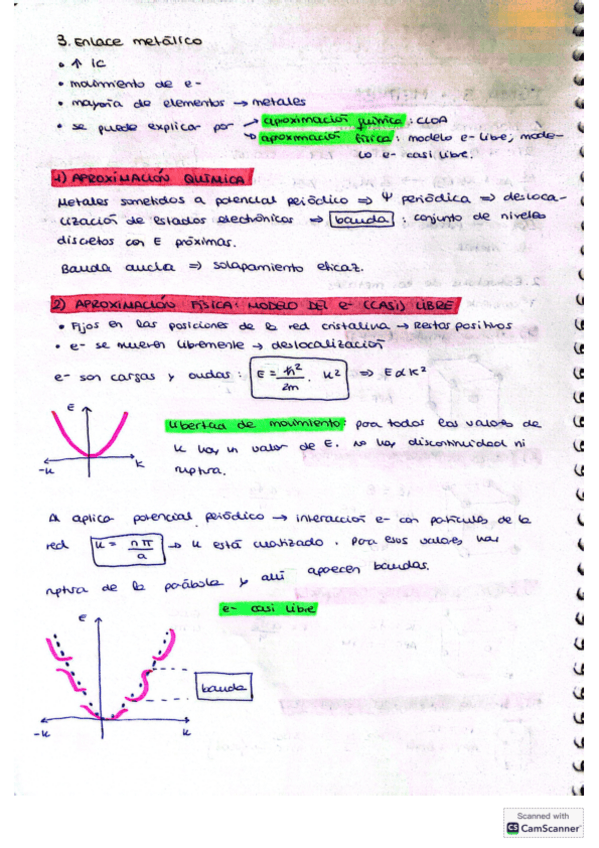 3. Enlace metálico
• ↑ IC
• movimiento de e-
• mayoría de elementos → metales
• se puede explicar por → aproximación química: CLOA
↘ aproximación física: modelo e- libre; mode-
lo e- casi libre.
1) APROXIMACIÓN QUÍMICA
Metales sometidos a potencial periódico ⇒ Ψ periódica ⇒ desloca-
lización de estados electrónicos ⇒ banda: conjunto de niveles
discretos con E próximas.
Banda ancha ⇒ solapamiento eficaz.
2) APROXIMACIÓN FÍSICA: MODELO DEL e- (CASI) LIBRE
• Fijos en las posiciones de la red cristalina → Restos positivos
• e- se mueven libremente → deslocalización
e- son cargas y ondas: E = ħ²/2m · K² ⇒ E α K²
E
-K K
libertad de movimiento: para todos los valores de
K hay un valor de E. No hay discontinuidad ni
ruptura.
A aplica potencial periódico → interacción e- con partículas de la
red K = nπ/a → K está cuantizado. Para esos valores hay
ruptura de la parábola y allí aparecen bandas.
e- casi libre
E
banda
-K K
Scanned with
CS CamScanner